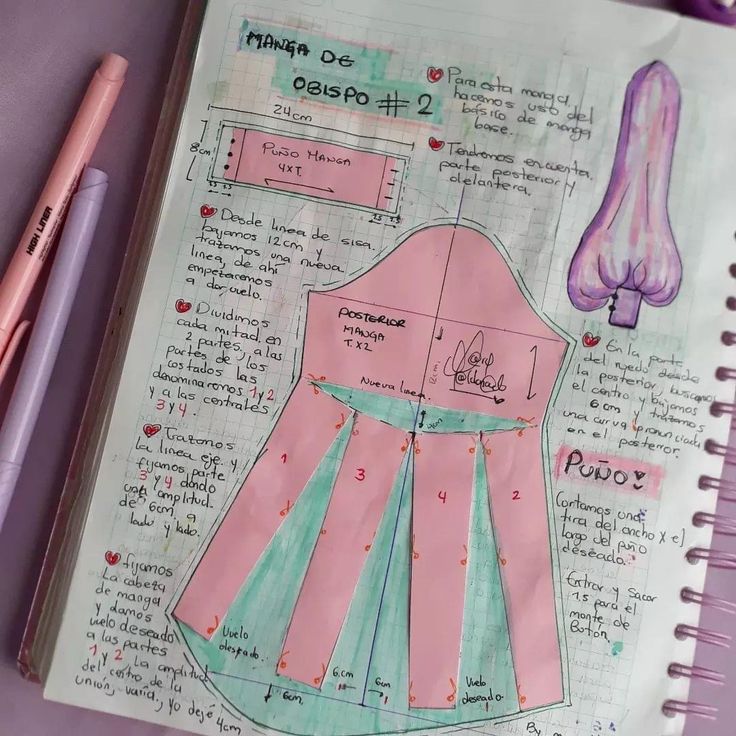 MANGA DE
OBISPO # 2
24cm
8cm
PUÑO MANGA
4XT.
1.5
1.5
Para esta manga
hacemos uso del
básico de manga
base.
Tendremos en cuenta
parte posterior y
delantera.
Desde linea de sisa.
bajamos 12cm y
trazamos una nueva
linea, de ahí
empezaremos
a dar vuelo.
Dividimos
cada mitad en
2 partes, a las
partes de los
costados las
denominaremos 1 y 2
y a las centrales
3 y 4.
Trazamos
la linea eje y
fijamos parte
3 y 4 dando
una amplitud
de 6cm a
lado y lado.
fijamos
La cabeza
de manga
y damos
vuelo deseado
a las partes
1 y 2. La amplitud
del centro de la
unión, varia, yo dejé 4cm
POSTERIOR
MANGA
T.X2
12cm.
Nueva linea.
4cm
1
3
4
2
Vuelo
deseado.
6cm
6cm
6cm
Vuelo
deseado.
En la parte
del ruedo desde
la posterior, buscamos
el centro y bajamos
6cm y trazamos
una curva pronunciada
en el posterior.
PUÑO
Cortamos una
tira del ancho x el
largo del puño
deseado.
Entrar y Sacar
1.5 para el
monte de
Botón
By
HIGH LINER